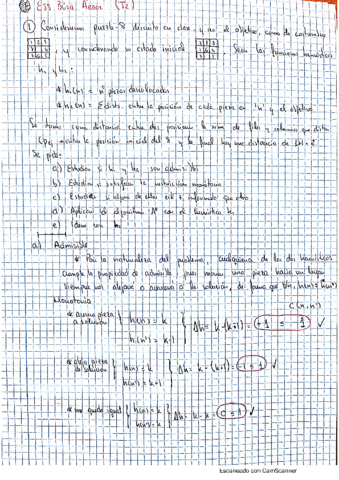 Ess Búsq Arbor (T2)
① Consideremos puzzle-8 descrito en clase, y no el objetivo, como de costumbre
, y considerando su estado inicial . Sean las funciones heurísticas
h₁ y h₂:
* h₁(n) = nº piezas descolocadas
* h₂(n) = Σ dists. entre la posición de cada pieza en 'n' y el objetivo
Se toma como distancia entre dos posiciones la núm de filas y columnas que dista
(p.ej. entre la posición inicial del 8 y la final hay una distancia de 2
Se pide:
a) Estudiar si h₁ y h₂ son admisibles
b) Estudiar si satisface la restricción monótona
c) Estudiar si alguna de ellas está + informada que otra
d) Aplicar el algoritmo A* con la heurística h₁
e) Idem con h₂
a) Admisible
* Por la naturaleza del problema, cualquiera de las dos heurísticas
cumple la propiedad de admisible pues mover una pieza hacia un lugar
siempre nos alejará o acercará a la solución, de forma que ∀n, h(n) ≤ h*(n)
Monotonía
C(n,n')
* acerco pieza a solución { h(n) = k h(n') = k-1 } Δh = k-(k-1) = +1 ≤ 1 ✓
* alejo pieza de solución { h(n) = k h(n') = k+1 } Δh = k-(k+1) = -1 ≤ 1 ✓
* me quedo igual { h(n) = k h(n') = k } Δh = k-k = 0 ≤ 1 ✓
Escaneado con CamScanner